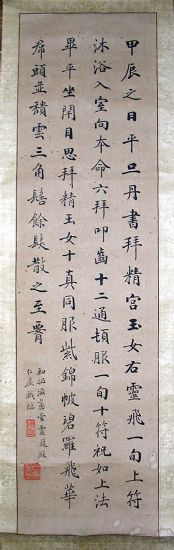 甲辰之日平旦丹書拜精宮玉女右靈飛一旬上符
沐浴入室向本命六拜叩齒十二通頓服一旬十符祝如上法
畢平坐閉目思拜精玉女十真同服紫錦帔碧羅飛華
帬頭並穨雲三角髻餘髮散之至
初拓滋蕙堂靈飛經